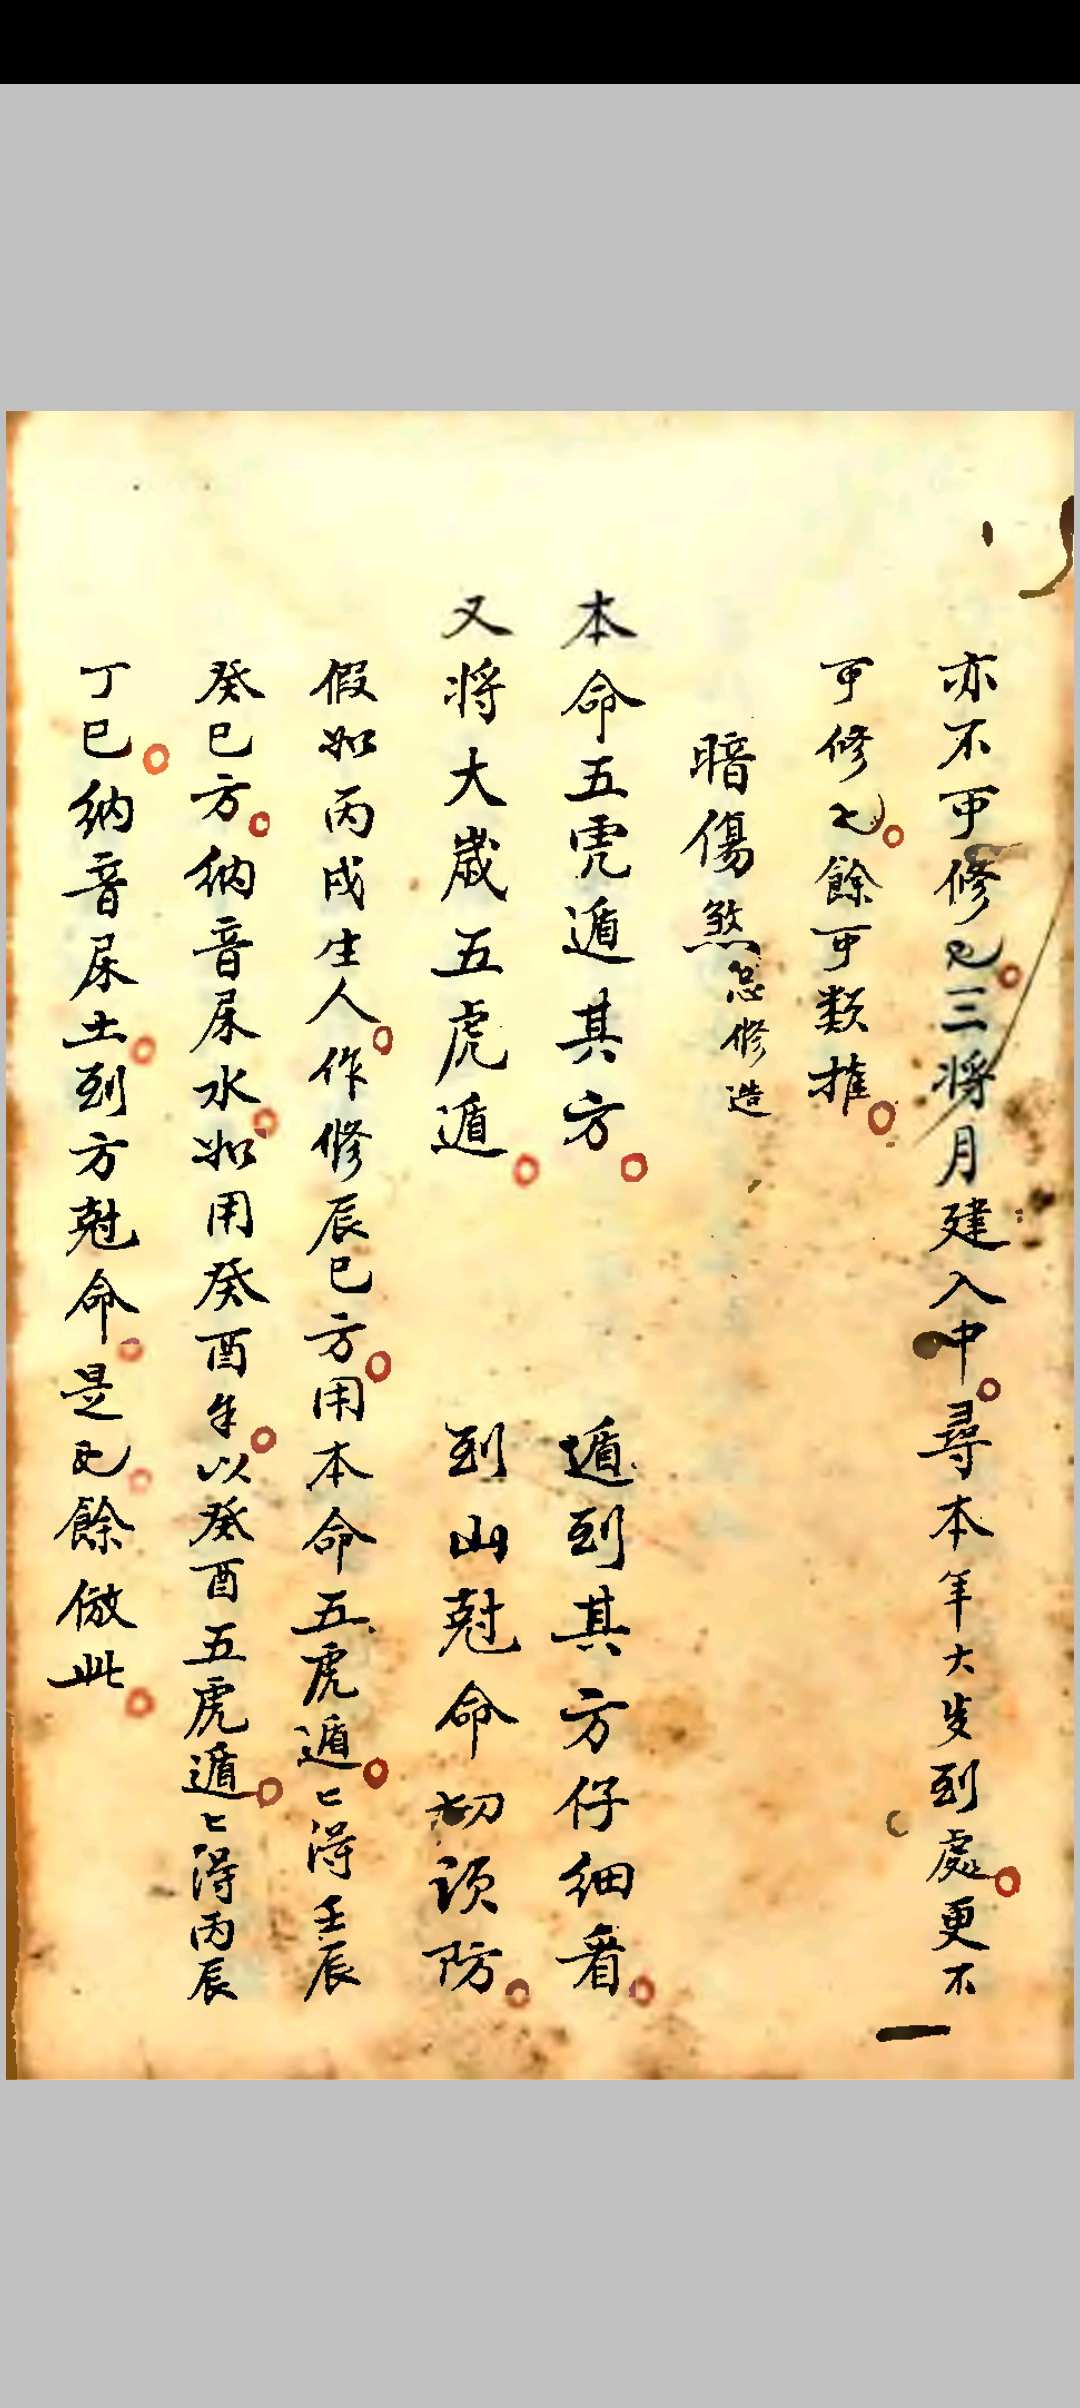 亦不可修也三将月建入中尋本年大岁到處更不
可修也餘可類推
暗傷煞忌修造
本命五虎遁其方　遁到其方仔細看
又将大歲五虎遁　到山尅命切須防
假如丙戌生人作修辰巳方用本命五虎遁〻得壬辰
癸巳方納音屎水如用癸酉年以癸酉五虎遁〻得丙辰
丁巳納音屎土到方尅命是也餘倣此